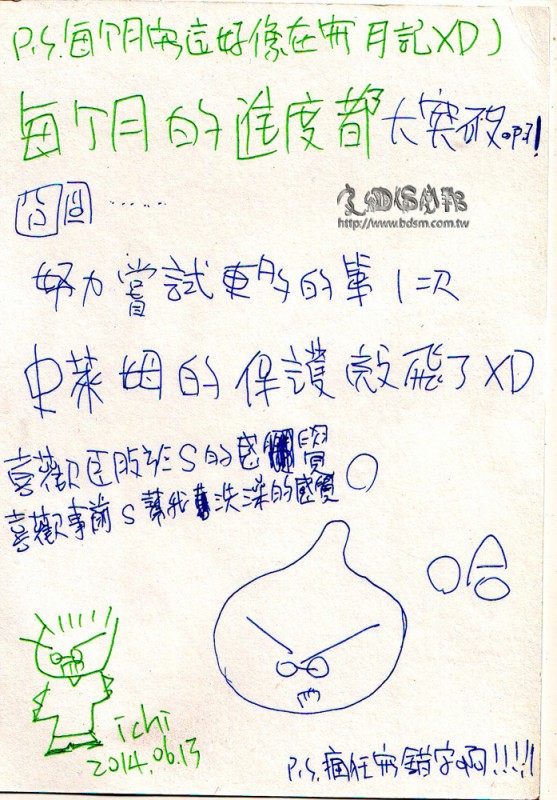 P.S.每个月寫這好像在寫月記XD)
每个月的進度都大突破。啊!
囧囧......
http://www.bdsm.com.tw
努力嘗試更多的第1次
史萊姆的保護殼飛了XD
喜歡臣服於S的感覺
喜歡事前S幫我洗澡的感覺
哈
ichi
2014.06.13
P.S.瘋狂寫錯字啊!!!!!